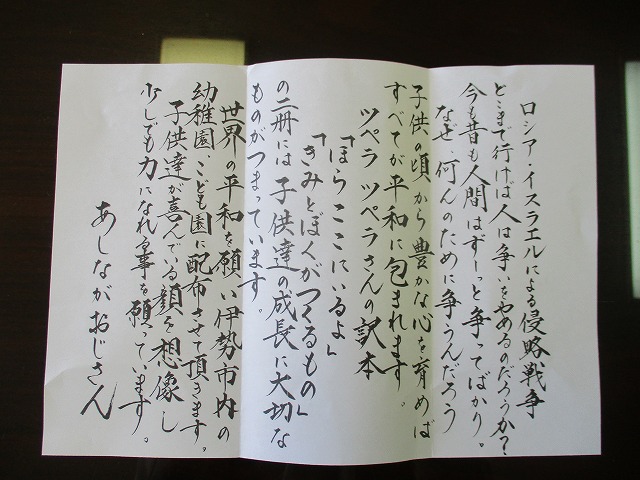 ロシア・イスラエルによる侵略戦争
どこまで行けば人は争いをやめるのだろうか?
今も昔も人間はずーっと争ってばかり。
なぜ、何んのために争うんだろう
子供の頃から豊かな心を育めば
すべてが平和に包まれます。
ツペラ ツペラさんの訳本
「ほらここにいるよ」
「きみとぼくがつくるもの」
の二冊には子供達の成長に大切な
ものがつまっています。
世界の平和を願い伊勢市内の
幼稚園、こども園に配布させて頂きます。
子供達が喜んでいる顔を想像し
少しでも力になれる事を願っています。
あしながおじさん